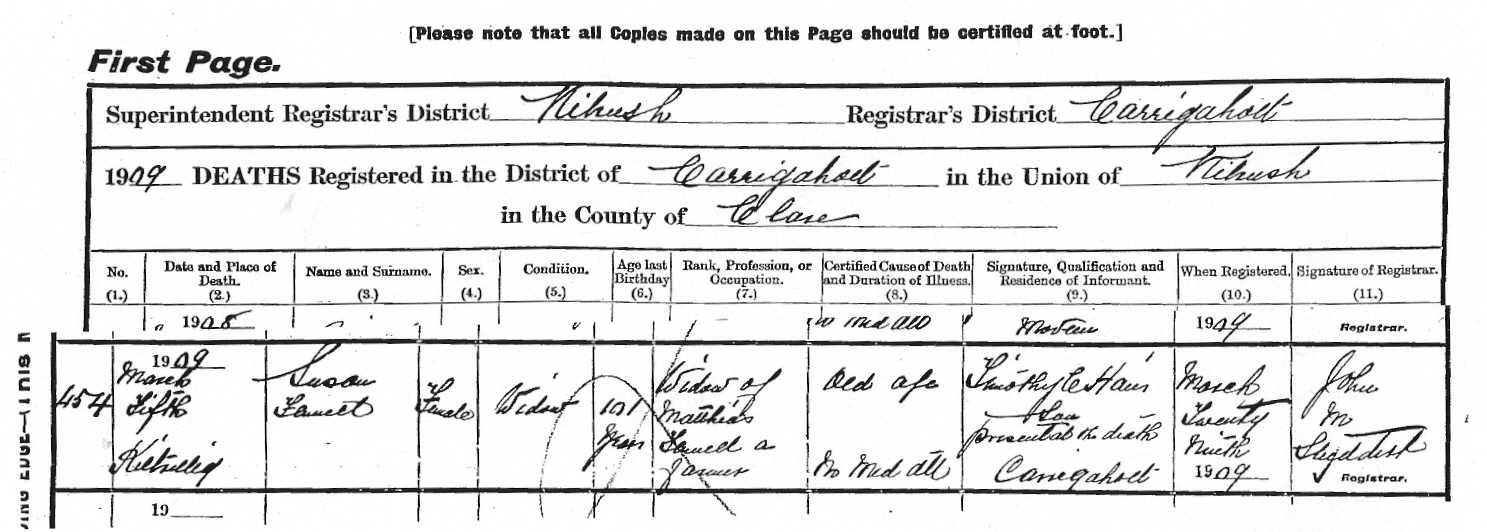 [Please note that all Copies made on this Page should be certified at foot.]
First Page.
Superintendent Registrar's District Kilrush Registrar's District Carrigaholt
1909 DEATHS Registered in the District of Carrigaholt in the Union of Kilrush
in the County of Clare
No. (1.) Date and Place of Death. (2.) Name and Surname. (3.) Sex. (4.) Condition. (5.) Age last Birthday (6.) Rank, Profession, or Occupation. (7.) Certified Cause of Death and Duration of Illness. (8.) Signature, Qualification and Residence of Informant. (9.) When Registered. (10.) Signature of Registrar. (11.)
1908 no med att 1909 Registrar.
454
1909
March
Fifth
Susan
Female
Widow
101
Years
Widow of
Matthias
a
farmer
Old age
No med att
Timothy
Son
present at the death
Carrigaholt
March
Twenty
Ninth
1909
John
M
Registrar.
19